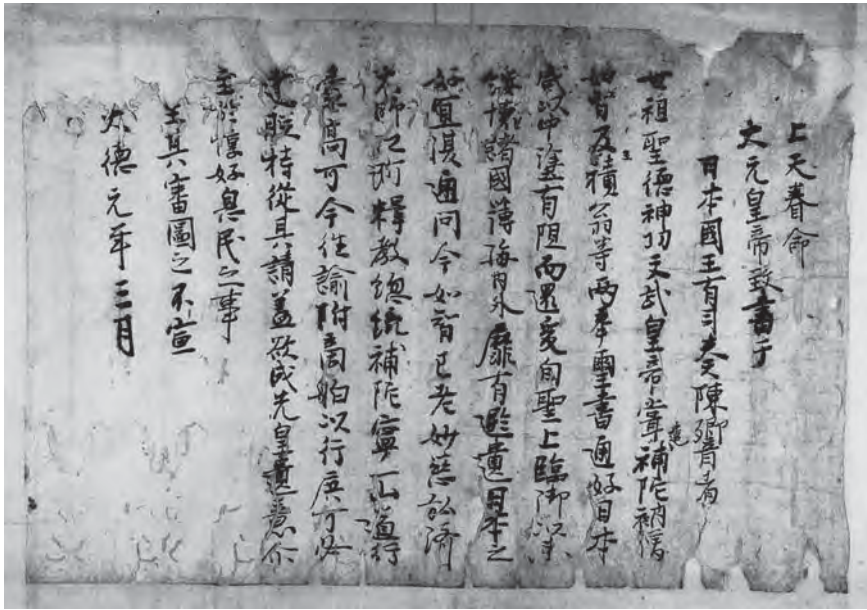 上天眷命
大元皇帝致書于
日本國王有司奏陳嚮者
世祖聖德神功文武皇帝嘗遣補陀衲僧
如智及王積翁等兩奉璽書通好日本
咸以中途有阻而還爰自聖上臨御以來
綏懷諸國薄海內外靡有遐遺日本之
好宜復通問今如智已老妙慈弘濟
大師江浙釋教總統補陀寧一山道行
素高可令往諭附商舶以行庶可必
達朕特從其請蓋欲成先皇遺意尒
至於惇好息民之事
王其審圖之不宣
大德元年三月